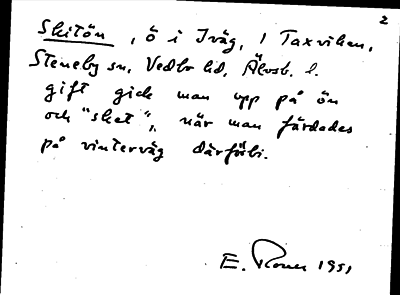 2
Skitön, ö i Iväg, i Taxviken,
Steneby sn, Vedbo hd, Älvsb. l.
gift gick man upp på ön
och "sket", när man färdades
på vinterväg därförbi.
E. 1951